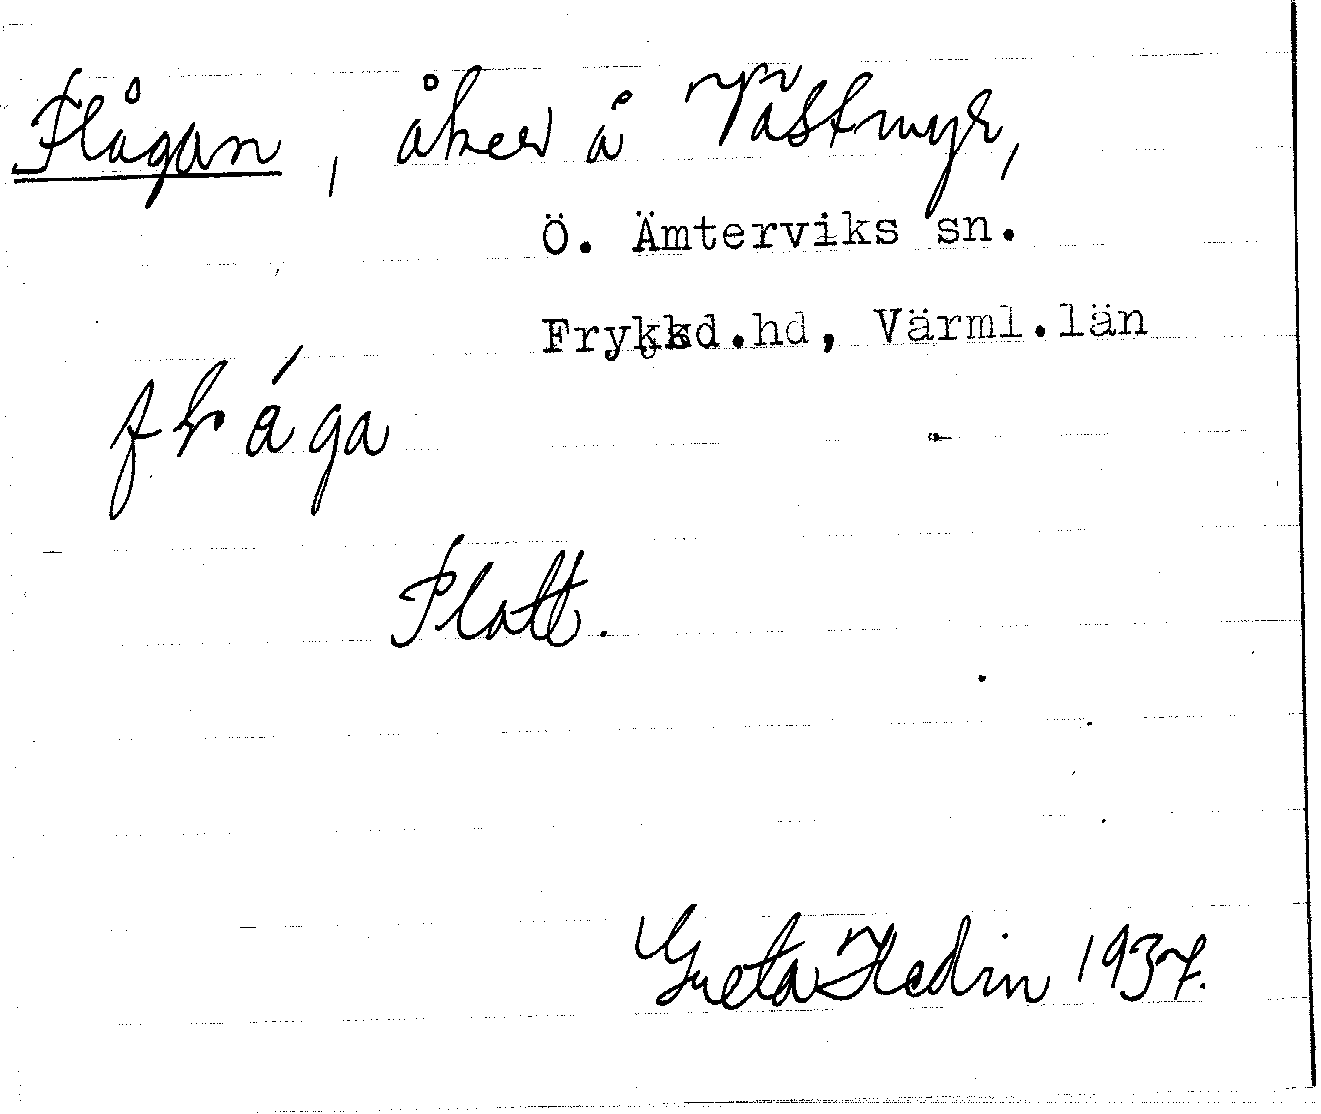 Flågan, åker å Västmyr,
Ö. Ämterviks sn.
Fryksd.hd, Värml.län
Flatt.
Greta Hedin 1937.